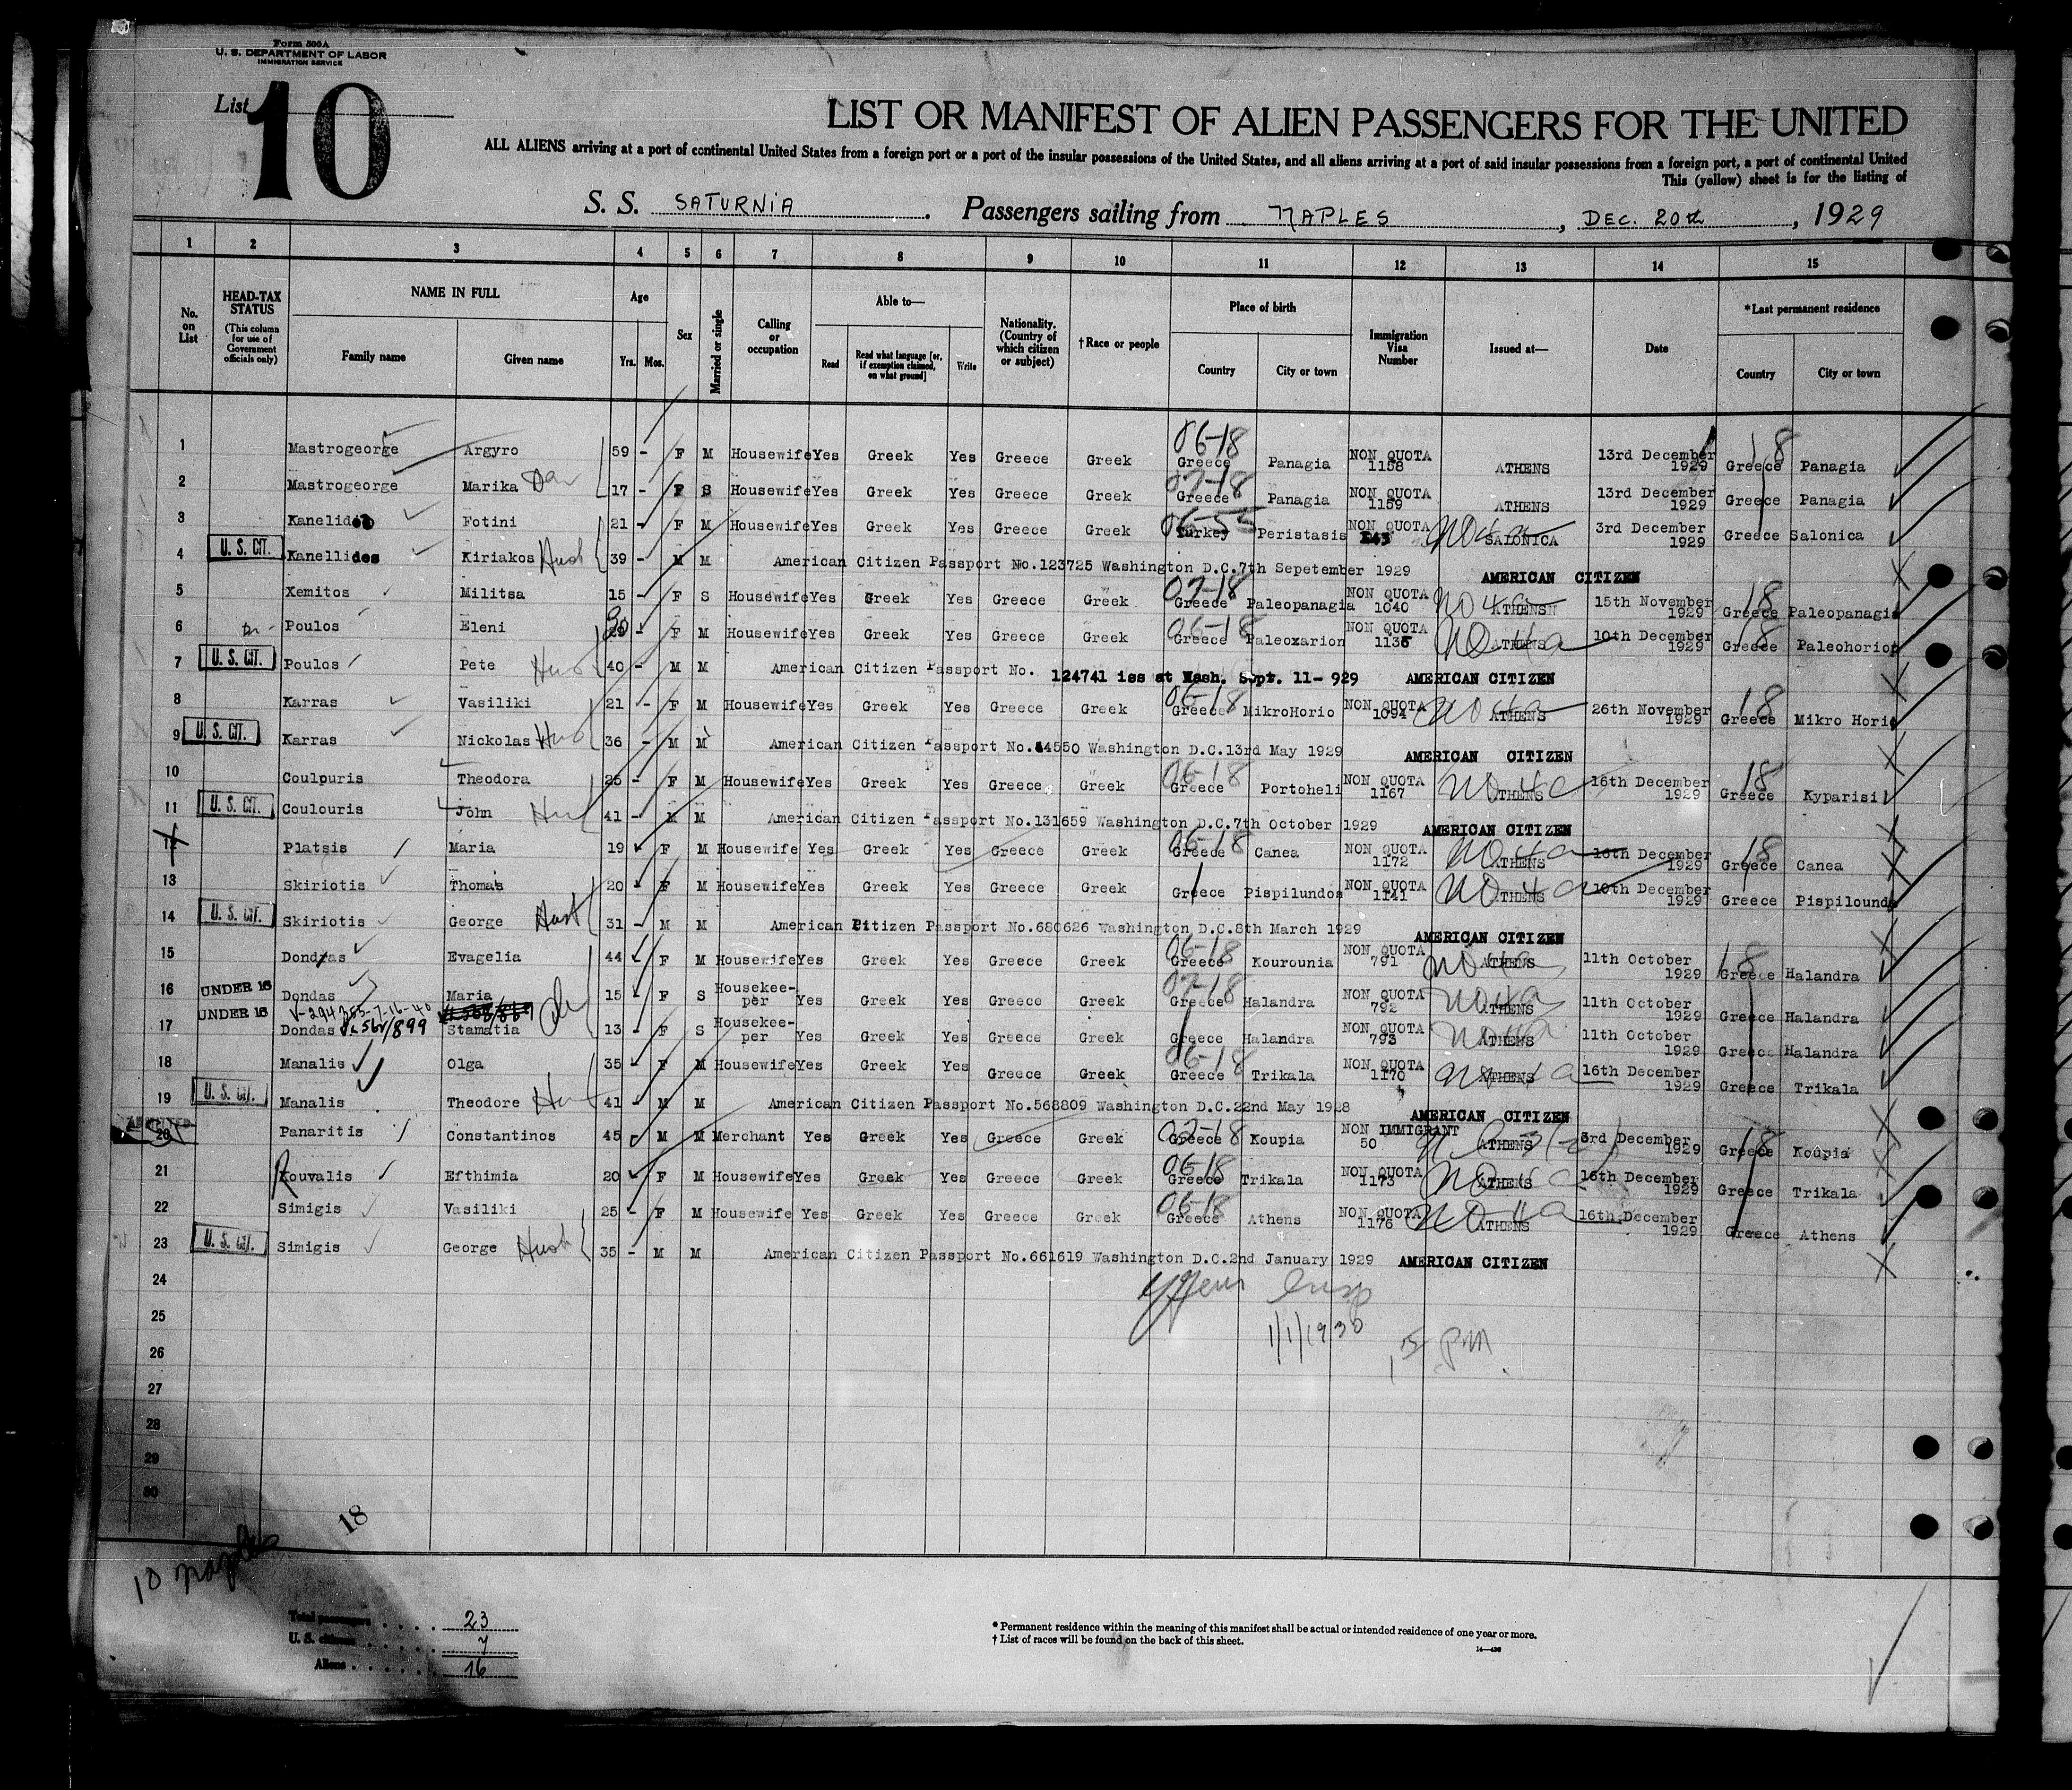 Form 500A
U. S. DEPARTMENT OF LABOR
IMMIGRATION SERVICE
List 10
LIST OR MANIFEST OF ALIEN PASSENGERS FOR THE UNITED
ALL ALIENS arriving at a port of continental United States from a foreign port or a port of the insular possessions of the United States, and all aliens arriving at a port of said insular possessions from a foreign port, a port of continental United
This (yellow) sheet is for the listing of
S. S. SATURNIA. Passengers sailing from NAPLES, DEC. 20th, 1929
1 2 3 4 5 6 7 8 9 10 11 12 13 14 15
No. on List
HEAD-TAX STATUS
(This column for use of Government officials only)
NAME IN FULL
Family name Given name
Age
Yrs. Mos.
Sex
Married or single
Calling or occupation
Able to—
Read Read what language [or, if exemption claimed, on what ground] Write
Nationality. (Country of which citizen or subject)
†Race or people
Place of birth
Country City or town
Immigration Visa Number
Issued at—
Date
*Last permanent residence
Country City or town
1 Mastrogeorge Argyro 59 - F M Housewife Yes Greek Yes Greece Greek 06-18 Greece Panagia NON QUOTA 1158 ATHENS 13rd December 1929 18 Greece Panagia
2 Mastrogeorge Marika 17 - F S Housewife Yes Greek Yes Greece Greek 07-18 Greece Panagia NON QUOTA 1159 ATHENS 13rd December 1929 Greece Panagia
3 Fotini 21 - F M Housewife Yes Greek Yes Greece Greek 06-55 Turkey Peristasis NON QUOTA SALONICA 3rd December 1929 Greece Salonica
4 U. S. CIT. Kanellides Kiriakos Husb 39 - M M American Citizen Passport No.123725 Washington D.C.7th Sepetember 1929 AMERICAN CITIZEN
5 Xemitos Militsa 15 - F S Housewife Yes Greek Yes Greece Greek 07-18 Greece Paleopanagia NON QUOTA 1040 No 4a ATHENS 15th November 1929 18 Greece Paleopanagia
6 Poulos Eleni 30 - F M Housewife Yes Greek Yes Greece Greek 06-18 Greece Paleoxarion NON QUOTA 1135 No 4a ATHENS 10th December 1929 18 Greece Paleohorion
7 U. S. CIT. Poulos Pete Hus 40 - M M American Citizen Passport No. 124741 iss at Wash. Sept. 11- 929 AMERICAN CITIZEN
8 Karras Vasiliki 21 - F M Housewife Yes Greek Yes Greece Greek 06-18 Greece MikroHorio NON QUOTA 1094 No 4a ATHENS 26th November 1929 18 Greece Mikro Horio
9 U. S. CIT. Karras Nickolas Hus 36 - M M American Citizen Passport No. Washington D.C.13rd May 1929 AMERICAN CITIZEN
10 Coulpuris Theodora 25 - F M Housewife Yes Greek Yes Greece Greek 06-18 Greece Portoheli NON QUOTA 1167 No 4a ATHENS 16th December 1929 18 Greece Kyparisi
11 U. S. CIT. Coulouris John Hus 41 - M M American Citizen Passport No.131659 Washington D.C.7th October 1929 AMERICAN CITIZEN
12 Platsis Maria 19 F M Housewife Yes Greek Yes Greece Greek 06-18 Greece Canea NON QUOTA 1172 No 4a ATHENS 16th December 1929 18 Greece Canea
13 Skiriotis Thomas 20 - F M Housewife Yes Greek Yes Greece Greek Greece Pispilundos NON QUOTA 1141 No 4a ATHENS 10th December 1929 Greece Pispilounda
14 U. S. CIT. Skiriotis George Husb 31 - M M American Citizen Passport No.680626 Washington D.C.8th March 1929 AMERICAN CITIZEN
15 Dondas Evagelia 44 F M Housewife Yes Greek Yes Greece Greek 06-18 Greece Kourounia NON QUOTA 791 No 4a ATHENS 11th October 1929 18 Greece Halandra
16 UNDER 16 Dondas Maria 15 - F S Housekee-per Yes Greek Yes Greece Greek 07-18 Greece Halandra NON QUOTA 792 No 4a ATHENS 11th October 1929 Greece Halandra
V-294355-7-16-40
17 UNDER 16 Dondas Stamatia 13 - F S Housekee-per Yes Greek Yes Greece Greek Greece Halandra NON QUOTA 793 No 4a ATHENS 11th October 1929 Greece Halandra
18 Manalis Olga 35 F M Housewife Yes Greek Yes Greece Greek 06-18 Greece Trikala NON QUOTA 1170 No 4a ATHENS 16th December 1929 Greece Trikala
19 U. S. CIT. Manalis Theodore Hus 41 - M M American Citizen Passport No.568809 Washington D.C.22nd May 1928 AMERICAN CITIZEN
ADMITTED
20 Panaritis Constantinos 45 M M Merchant Yes Greek Yes Greece Greek 07-18 Greece Koupia NON IMMIGRANT 50 ATHENS 3rd December 1929 18 Greece Koupia
21 Kouvalis Efthimia 20 F M Housewife Yes Greek Yes Greece Greek 06-18 Greece Trikala NON QUOTA 1173 No 4a ATHENS 16th December 1929 Greece Trikala
22 Simigis Vasiliki 25 - F M Housewife Yes Greek Yes Greece Greek 06-18 Greece Athens NON QUOTA 1176 No 4a ATHENS 16th December 1929 Greece Athens
23 U. S. CIT. Simigis George Husb 35 - M M American Citizen Passport No.661619 Washington D.C.2nd January 1929 AMERICAN CITIZEN
24
25 1/1/1930
26 5 PM
27
28
29
30
18
10 Naples
Total passengers .... 23
U. S. citizens .... 7
Aliens ...... 16
* Permanent residence within the meaning of this manifest shall be actual or intended residence of one year or more.
† List of races will be found on the back of this sheet.